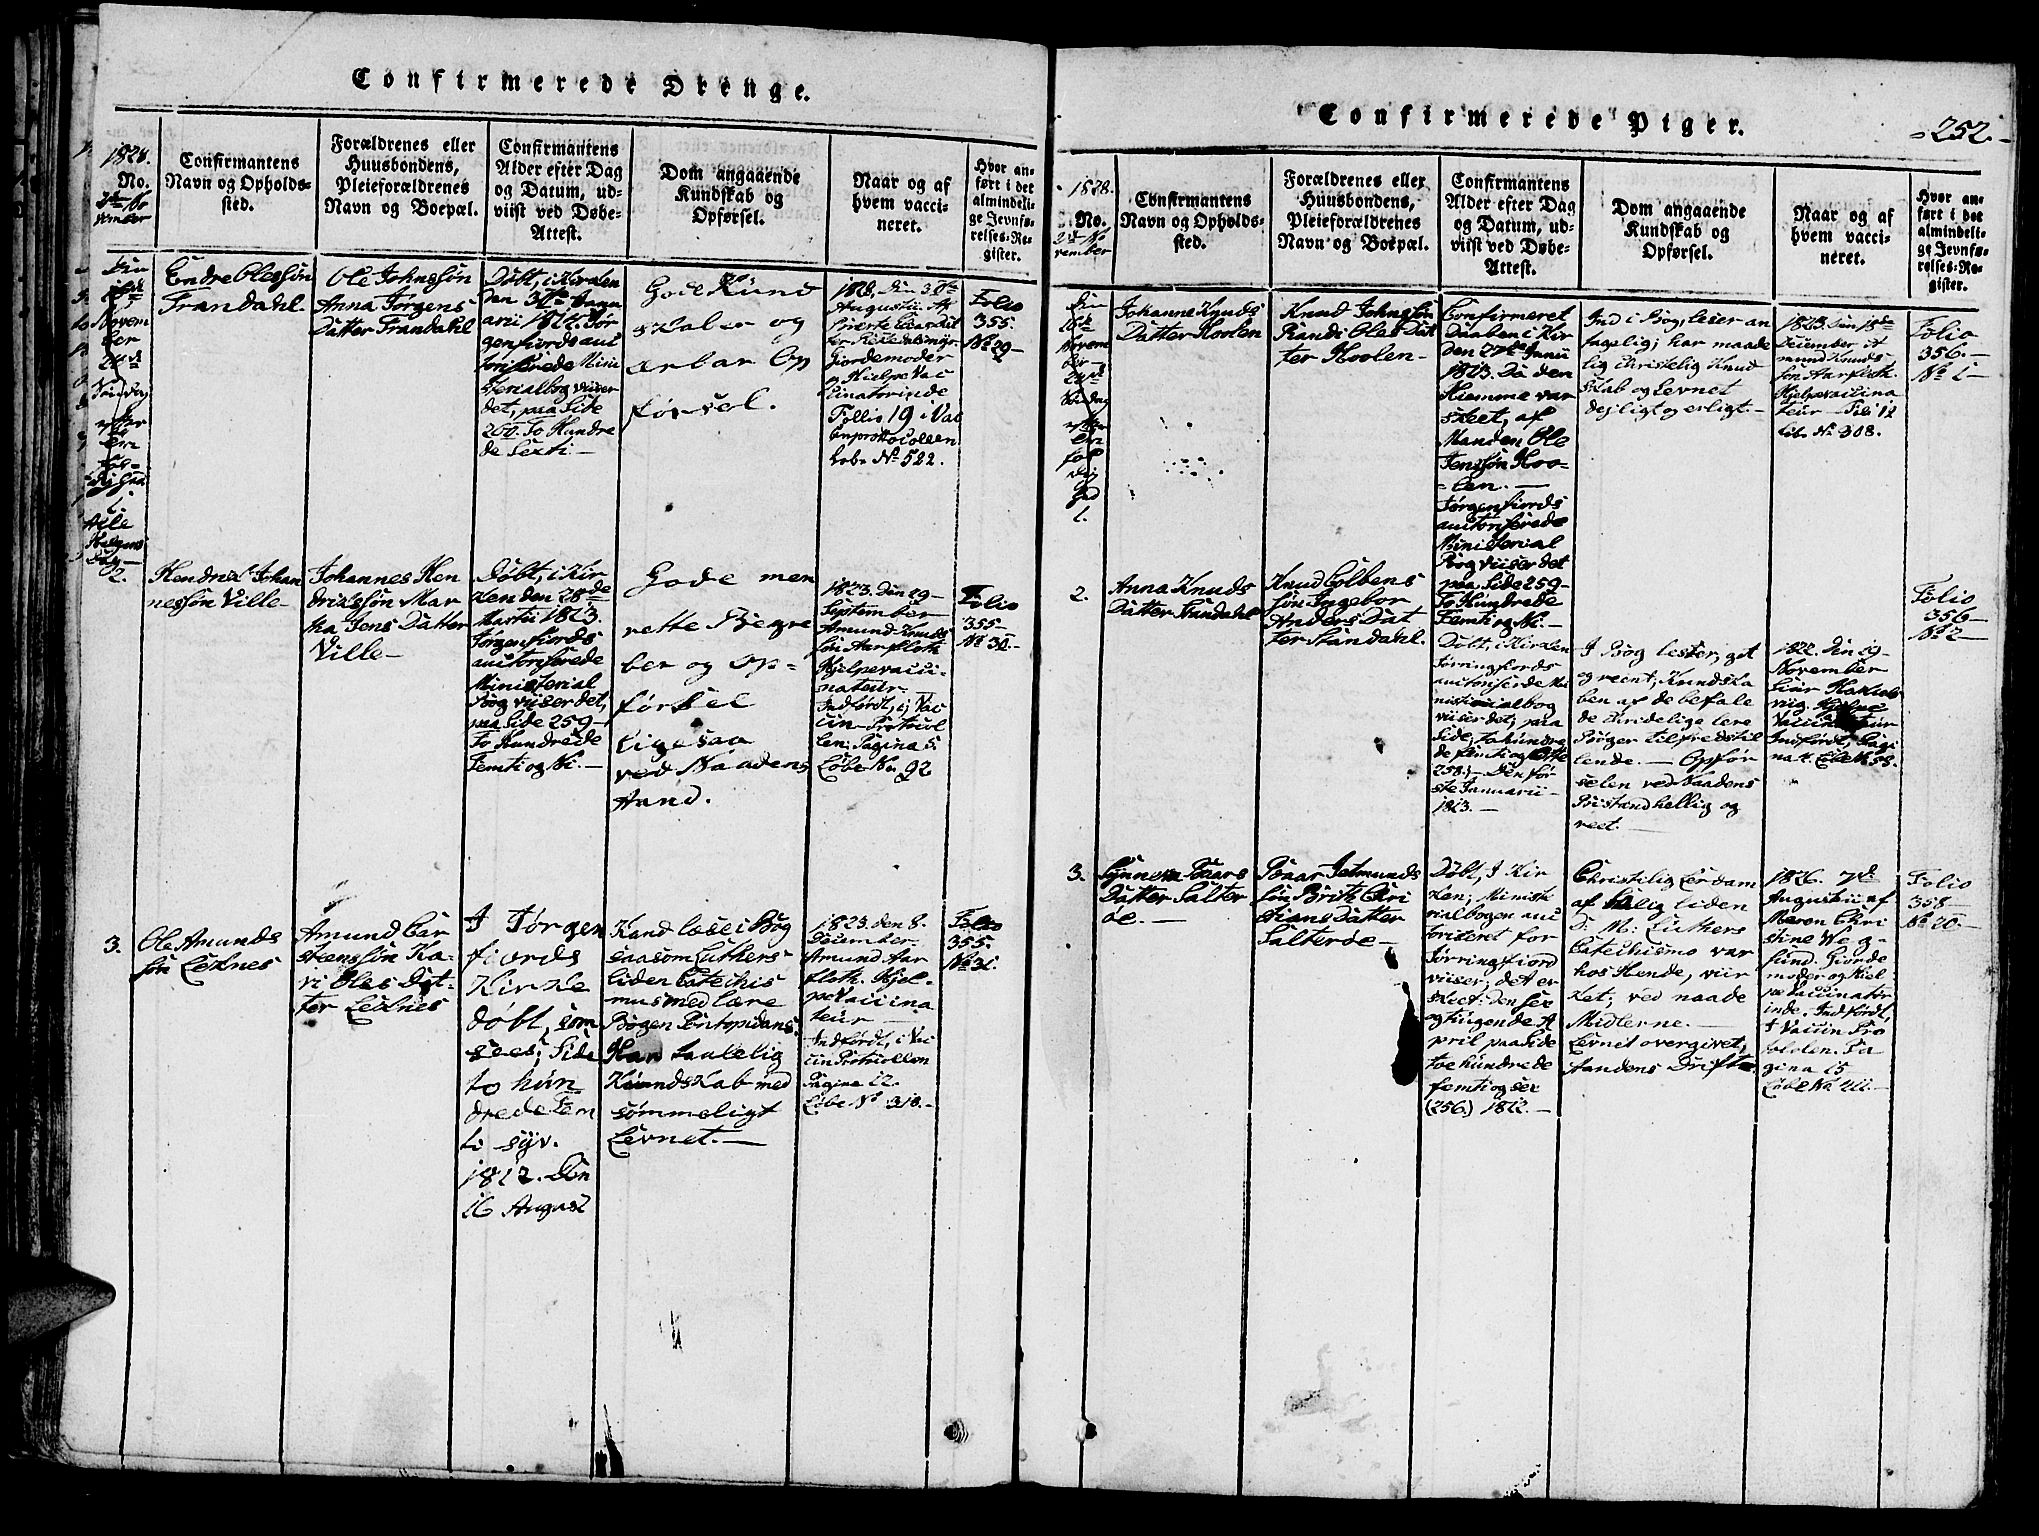 Confirmerede Drenge.
1828.
No.
2den No
vember
Confirmantens
Navn og Opholds-
sted.
Forældrenes eller
Huusbondens,
Pleieforældrenes
Navn og Boepæl.
Confirmantens
Alder efter Dag
og Datum, ud-
viist ved Døbe-
Attest.
Dom angaaende
Kundskab og
Opførsel.
Naar og af
hvem vacci-
neret.
Hvor an-
ført i det
almindeli-
ge Jevnfø-
relses-Re-
gister.
Novem
ber
Endre Olessøn
Frandahl.
Ole Johnssøn
Anna Jørgens
Datter Frandahl
Døbt, i Kirken
genfiords auc
toriserede Mini
sterialbog viiser
det, paa Side
260. To Hundre
de Sexti.—
Gode Kund
skaber og
ærbar Op
førsel.
Augustii
Giordemoder
og Hielpe Vac
cinatorinde
Follio 19 i Vac
cinprottocollen
Lobe No 522.
Folio
355.
No 29—
2.
Hendrik Johan
nessøn Ville—
Johannes Hen
drikssøn Mar
tha Jens Datter
Ville—
Døbt, i Kir
ken den 28de
Martii 1813.
Jørgenfiords
auctoriserede
Ministerial
Bog viiser det,
paa Side 259—
To Hundrede
Femti og Ni.—
Gode men
rette Begre
ber og Op-
førsel
ligesaa
ved Naadens
Aand.
1823. Den 29—
September
Amund Knuds
søn Aarfloth
Hjelpevacci-
nateur.
Indførdt, i Vac
cin-Protocol
len: Pagina 5.
Løbe No. 92
Folio
355—
No 30.—
3.
Ole Amunds
søn Leknes
Amund Car
steenssøn Ka-
ri Oles Dat-
ter Leknes
I Jørgen
fiords
Kirke
døbt, som
sees; Side
to hun
drede Fem
ti syv.
1812. Den
16 August
Kand læse i Bog
saasom Luthers
liden Catechis
mus med lære
Bogen Pontopidans:
Han taalelig
Kundskab med
sømmeligt
Levnet.—
1823. den 8.
December.
Amund Aar
floth. Hjel-
pe Vaccina
teur—
Indførdt, i Vac
cin Protocollen
Pagina 12.
Løbe No 318.—
Folio
355.
No 31.
Confirmerede Piger.
252.
1828.
No.
2den No
vember
Confirmantens
Navn og Opholds-
sted.
Forældrenes eller
Huusbondens,
Pleieforældrenes
Navn og Boepæl.
Confirmantens
Alder efter Dag
og Datum, ud-
viist ved Døbe-
Attest.
Dom angaaende
Kundskab og
Opførsel.
Naar og af
hvem vacci-
neret.
Hvor an-
ført i det
almindeli-
ge Jevnfø-
relses-Re-
gister.
1.
Johanne Knuds
Datter Hoolen
Knud Johnssøn
Randi Oles Dat
ter Hoolen—
Confirmeret
Daaben i Kir
den 27de Junii
1813. Da den
Hiemme var
skeet, af
Manden Ole
Jenssøn Hoo-
len.—
Jørgenfiords
auctoriserede
Ministerial
Bog viiser det
paa Side 259—
To Hundrede
Femti og Ni.—
Ind i Bog, leser an
tagelig; har maade
lig Christelig Kund
skab og Levnet
dejligt og erligt.—
1823. Den 18de
December A
mund Knuds
søn Aarfloth
Hjelpevaccina
teur— Foli 12
Lib. No 308.
Folio
356.—
No 1—
2.
Anna Knuds
Datter Standahl
Knud Colbens
søn Ingebor
Anders Dat
ter Standahl.
Døbt, i Kirken
Jørringfiords
auctoriserede Mi
nisterialbog
viiser det; paa
Side; tohundre
de femti og Otte
258.— Den før
ste Januarii—
1813.—
I Bog lester, got
og reent; Kundska
ben af de befale
de Christelige lere
Bøger tilfredstil
lende.— Opfør
selen ved Naadens
Bistand hellig og
reet.—
1822. Den 29—
November
Vaccinateur
Indførdt, Pagi
na 4. Løbe No 58.
Folio
356—
No 2—
3.
Synneva Baars
Datter Sæter
øe.—
Baar Jetmunds
søn Brite Chri
stians Datter
Sæterøe—
Døbt, I Kir
ken; Ministe
rialbogen auc
toriteret for
Jørringfiord
viiser; det er
skeet: den sex
og tiugende A
pril paa Side
toe hundrede
femti og sex
(256.) 1812.—
Christelig Lerdom
af salig liden
D: M: Luthers
Catechismo var
hos Hende, vir
ket; ved naade
Midlerne.—
Levnet overgivet,
Aandens Drifte.
1826. 7de
Augustii af
Maren Chri
stine Weg-
sund. Giorde
moder og Hiel
pe Vaccinator
inde. Indførdt,
I Vaccin Pro
tokolen. Pa
gina 15
Løbe No 411.—
Folio
358—
No 20.—